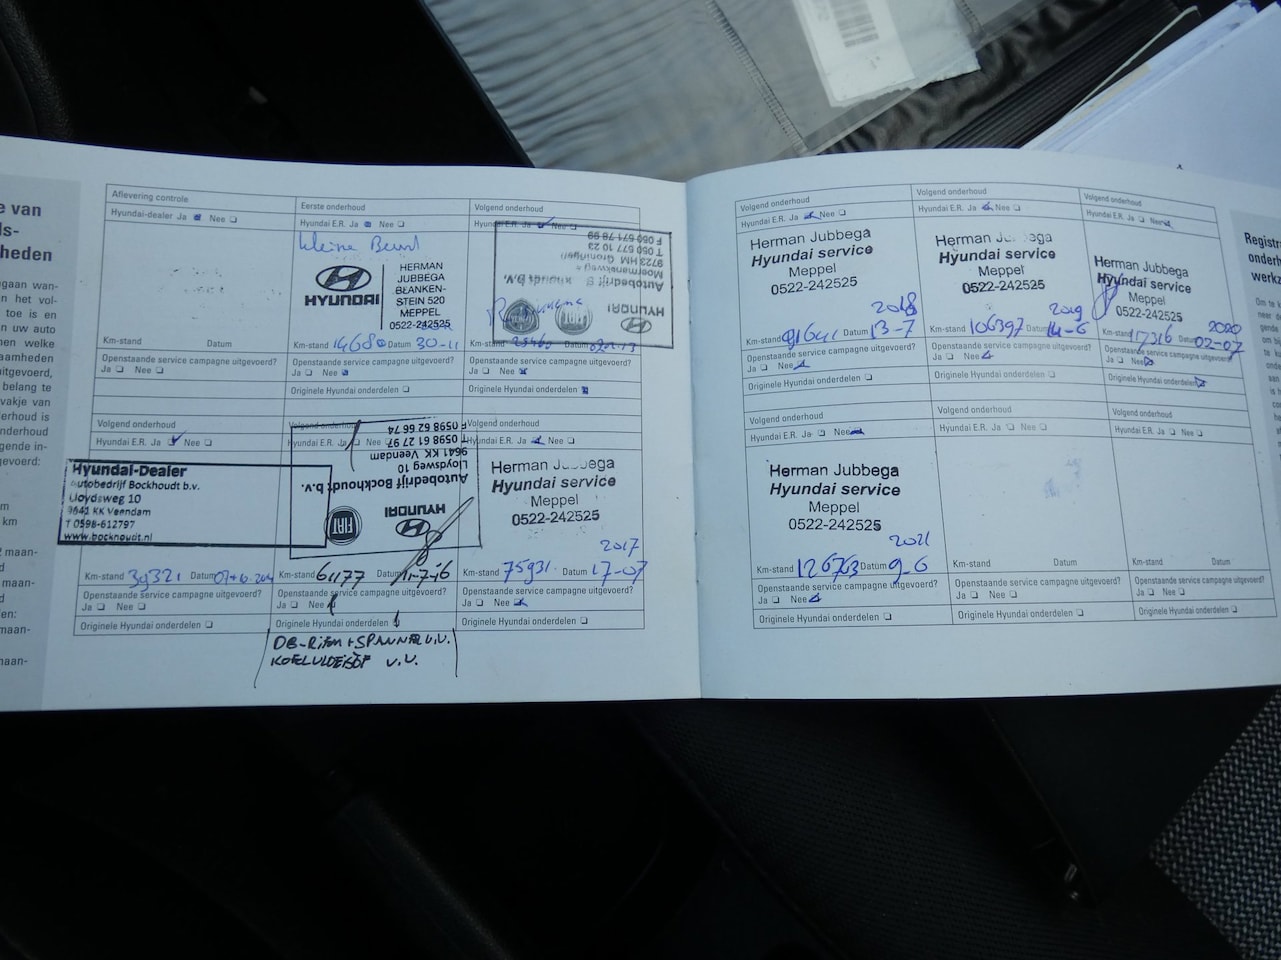 e van
ls-
heden
Aflevering controle
Hyundai-dealer Ja Nee
Km-stand Datum
Openstaande service campagne uitgevoerd?
Ja Nee
Eerste onderhoud
Hyundai E.R. Ja Nee
kleine Beurt
HYUNDAI
HERMAN
JUBBEGA
BLANKEN-
STEIN 520
MEPPEL
0522-242525
Km-stand Datum 30-11
Openstaande service campagne uitgevoerd?
Ja Nee
Originele Hyundai onderdelen
Volgend onderhoud
Hyundai E.R. Ja Nee
HYUNDAI
Autobedrijf B khoudt b.v.
9723 HM Groningen
T 050 577 10 23
F 050 571 78 99
Km-stand Datum
Openstaande service campagne uitgevoerd?
Ja Nee
Originele Hyundai onderdelen
Volgend onderhoud
Hyundai E.R. Ja Nee
Hyundai-Dealer
utobedrijf Bockhoudt b.v.
Lloydsweg 10
9641 KK Veendam
T 0598-612797
www.bockhoudt.nl
Km-stand 39321 Datum
Openstaande service campagne uitgevoerd?
Ja Nee
Originele Hyundai onderdelen
Volgend onderhoud
Hyundai E.R. Ja Nee
FIAT HYUNDAI
Autobedrijf Bockhoudt b.v.
Lloydsweg 10
9641 KK Veendam
T 0598 61 27 97
F 0598 62 66 74
Km-stand 61177 Datum 11-7-16
Openstaande service campagne uitgevoerd?
Ja Nee
Originele Hyundai onderdelen
DB-RIEM + SPANNER V.V.
KOELVLOEISTOF V.V.
Volgend onderhoud
Hyundai E.R. Ja Nee
Herman Jubbega
Hyundai service
Meppel
0522-242525
2017
Km-stand 75931 Datum 17-07
Openstaande service campagne uitgevoerd?
Ja Nee
Originele Hyundai onderdelen
Volgend onderhoud
Hyundai E.R. Ja Nee
Herman Jubbega
Hyundai service
Meppel
0522-242525
2018
Km-stand 91641 Datum 13-7
Openstaande service campagne uitgevoerd?
Ja Nee
Originele Hyundai onderdelen
Volgend onderhoud
Hyundai E.R. Ja Nee
Herman Jubbega
Hyundai service
Meppel
0522-242525
2019
Km-stand 106397 Datum 14-6
Openstaande service campagne uitgevoerd?
Ja Nee
Originele Hyundai onderdelen
Volgend onderhoud
Hyundai E.R. Ja Nee
Herman Jubbega
Hyundai service
Meppel
0522-242525
2020
Km-stand 117316 Datum 02-07
Openstaande service campagne uitgevoerd?
Ja Nee
Originele Hyundai onderdelen
Volgend onderhoud
Hyundai E.R. Ja Nee
Herman Jubbega
Hyundai service
Meppel
0522-242525
2021
Km-stand 126763 Datum 9-6
Openstaande service campagne uitgevoerd?
Ja Nee
Originele Hyundai onderdelen
Volgend onderhoud
Hyundai E.R. Ja Nee
Km-stand Datum
Openstaande service campagne uitgevoerd?
Ja Nee
Originele Hyundai onderdelen
Volgend onderhoud
Hyundai E.R. Ja Nee
Km-stand Datum
Openstaande service campagne uitgevoerd?
Ja Nee
Originele Hyundai onderdelen
Registr
onderh
werkz